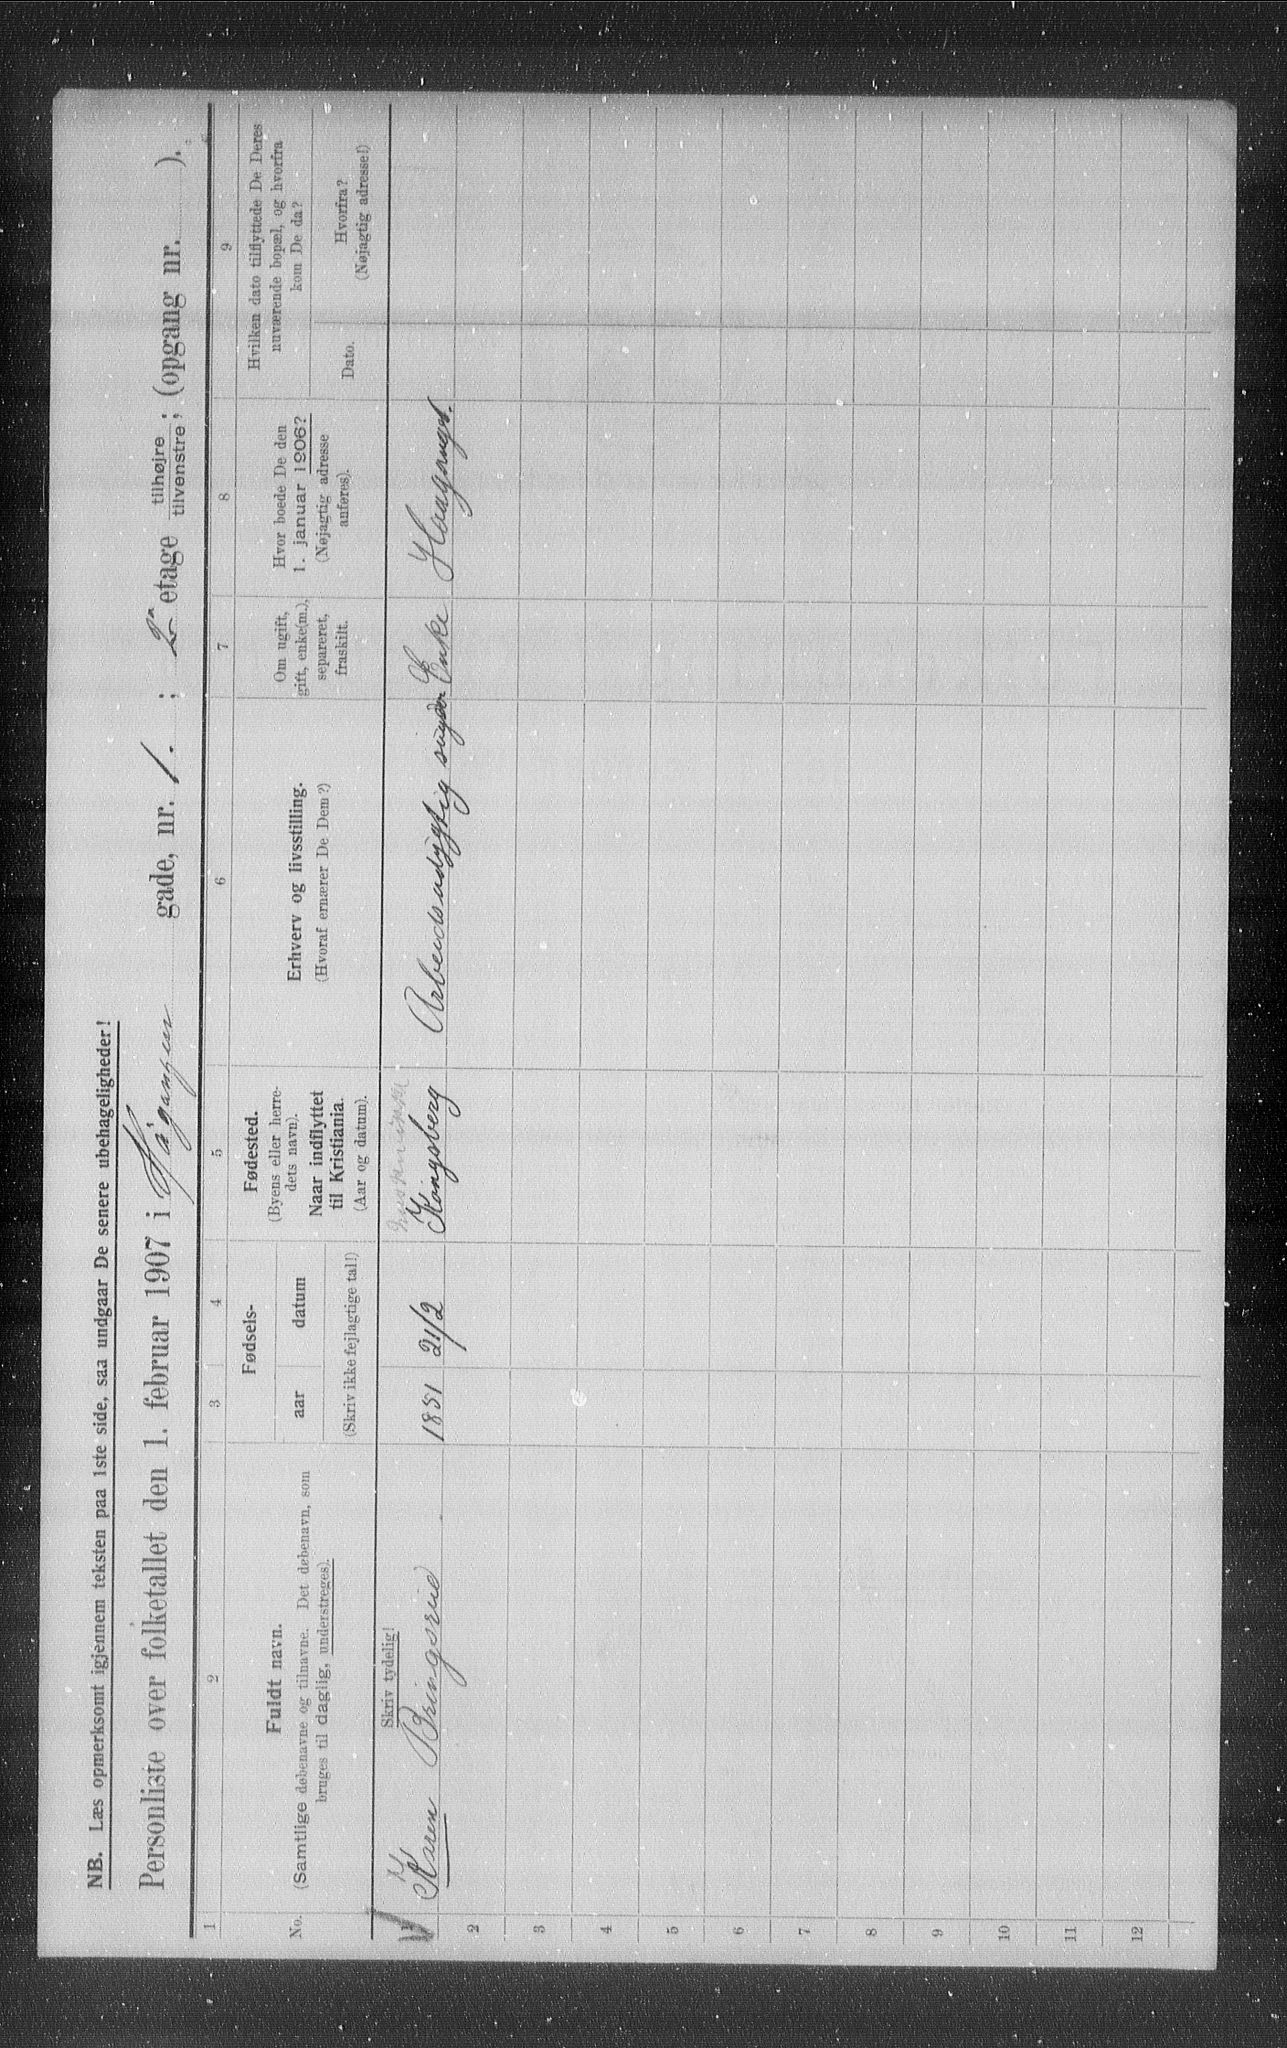 NB. Læs opmerksomt igjennem teksten paa 1ste side, saa undgaar De senere ubehageligheder!
Personliste over folketallet den 1. februar 1907 i gade, nr. 1. ; 2 etage tilhøjre tilvenstre; (opgang nr. ).
1 2 3 4 5 6 7 8 9
No.
Fuldt navn.
(Samtlige døbenavne og tilnavne. Det døbenavn, som
bruges til daglig, understreges).
Fødsels-
aar datum
(Skriv ikke fejlagtige tal!)
Fødested.
(Byens eller herre-
dets navn).
Naar indflyttet
til Kristiania.
(Aar og datum).
Erhverv og livsstilling.
(Hvoraf ernærer De Dem?)
Om ugift,
gift, enke(m.),
separeret,
fraskilt.
Hvor boede De den
1. januar 1906?
(Nøjagtig adresse
anføres).
Hvilken dato tilflyttede De Deres
nuværende bopæl, og hvorfra
kom De da?
Dato.
Hvorfra?
(Nøjagtig adresse!)
Skriv tydelig!
1 Karen Bringsrud 1851 21/2 Kongsberg Arbeidsudygtig Enke
2
3
4
5
6
7
8
9
10
11
12